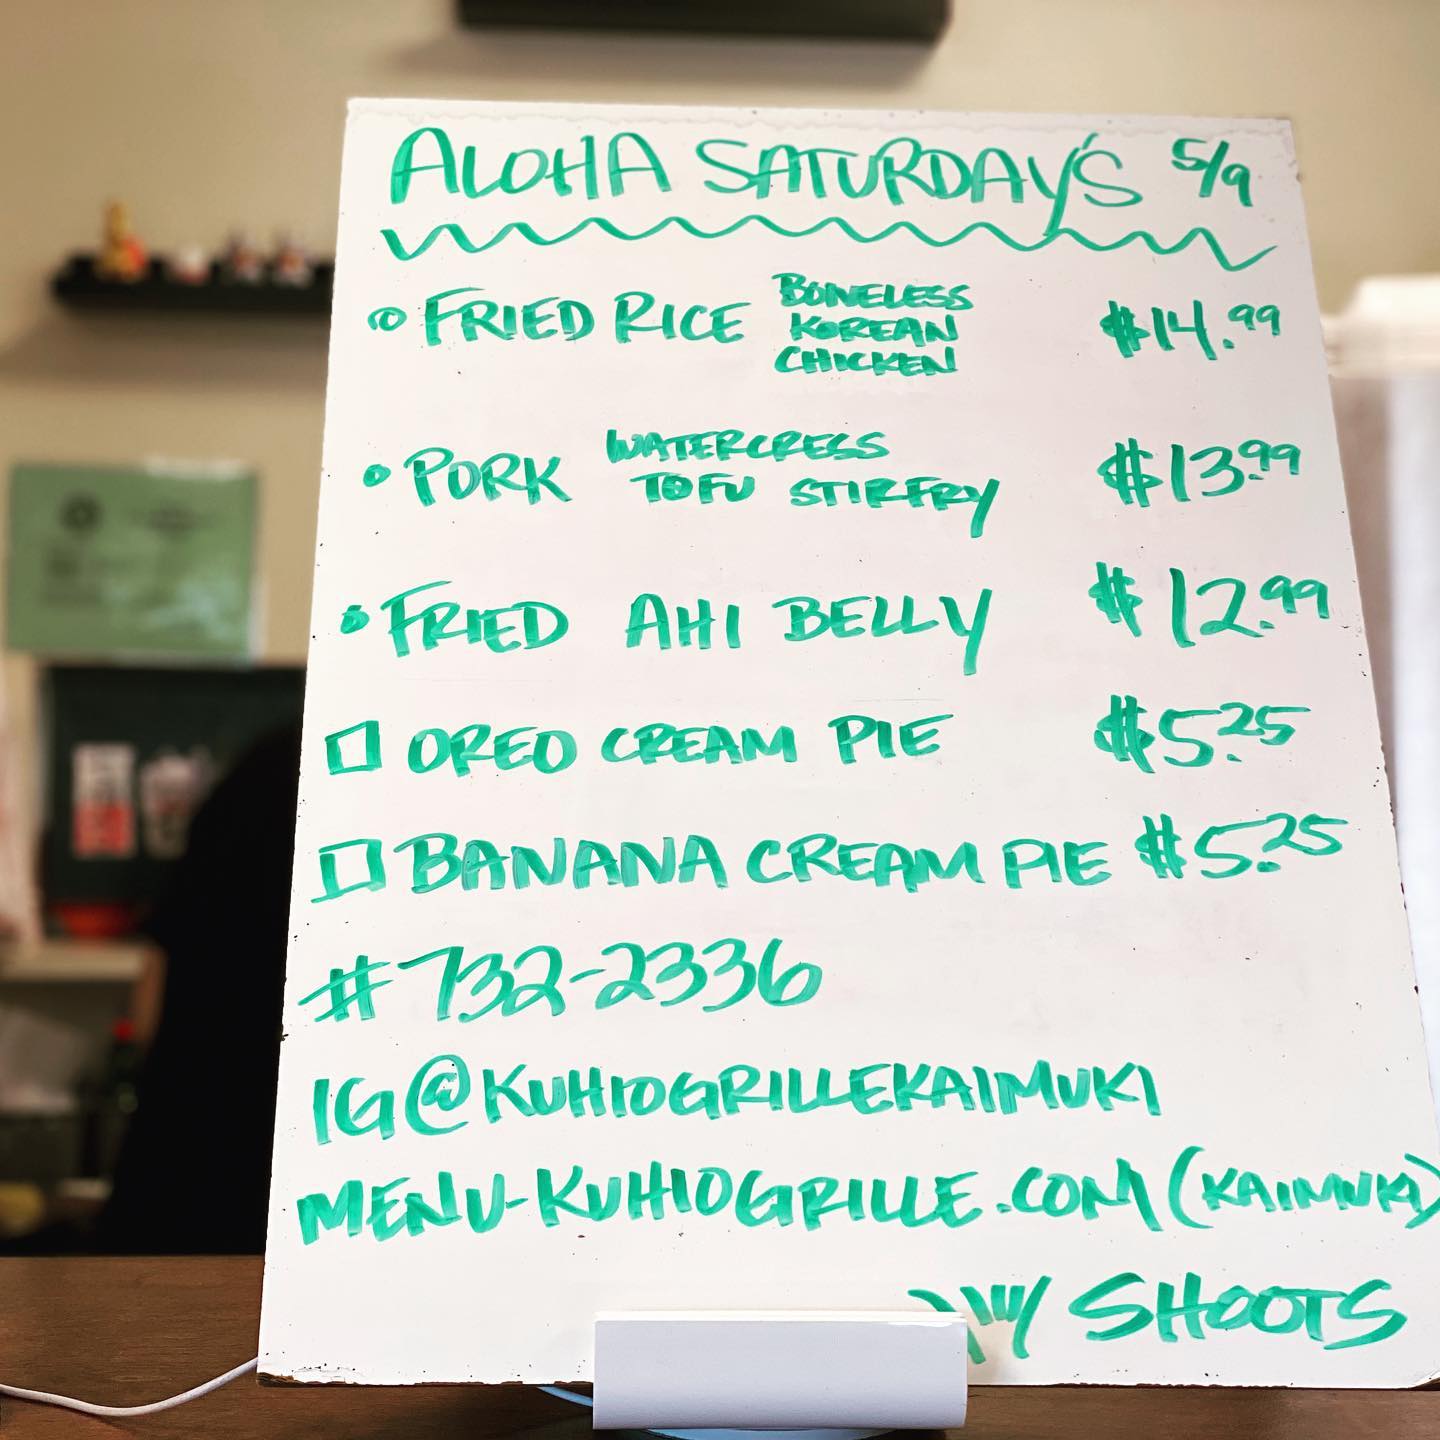 ALOHA SATURDAY'S 5/9
FRIED RICE BONELESS KOREAN CHICKEN $14.99
PORK WATERCRESS TOFU STIRFRY $13.99
FRIED AHI BELLY $12.99
OREO CREAM PIE $5.25
BANANA CREAM PIE $5.25
#732-2336
IG@KUHIOGRILLEKAIMUKI
MENU-KUHIOGRILLE.COM (KAIMUKI)
SHOOTS